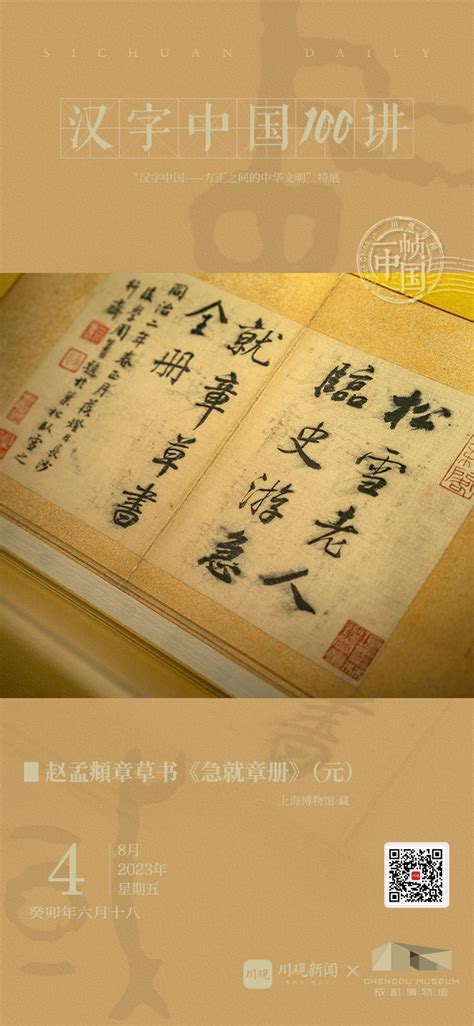 SICHUAN DAILY
汉字中国100讲
“汉字中国——方正之间的中华文明”特展
一帧
中国
松雪老人
臨史游急
就章草書
全册
同治二年春正月
赵孟頫章草书《急就章册》（元）
上海博物馆 藏
4
8月
2023年
星期五
癸卯年六月十八
川观
川观新闻
×
CHENGDU MUSEUM
成都博物馆